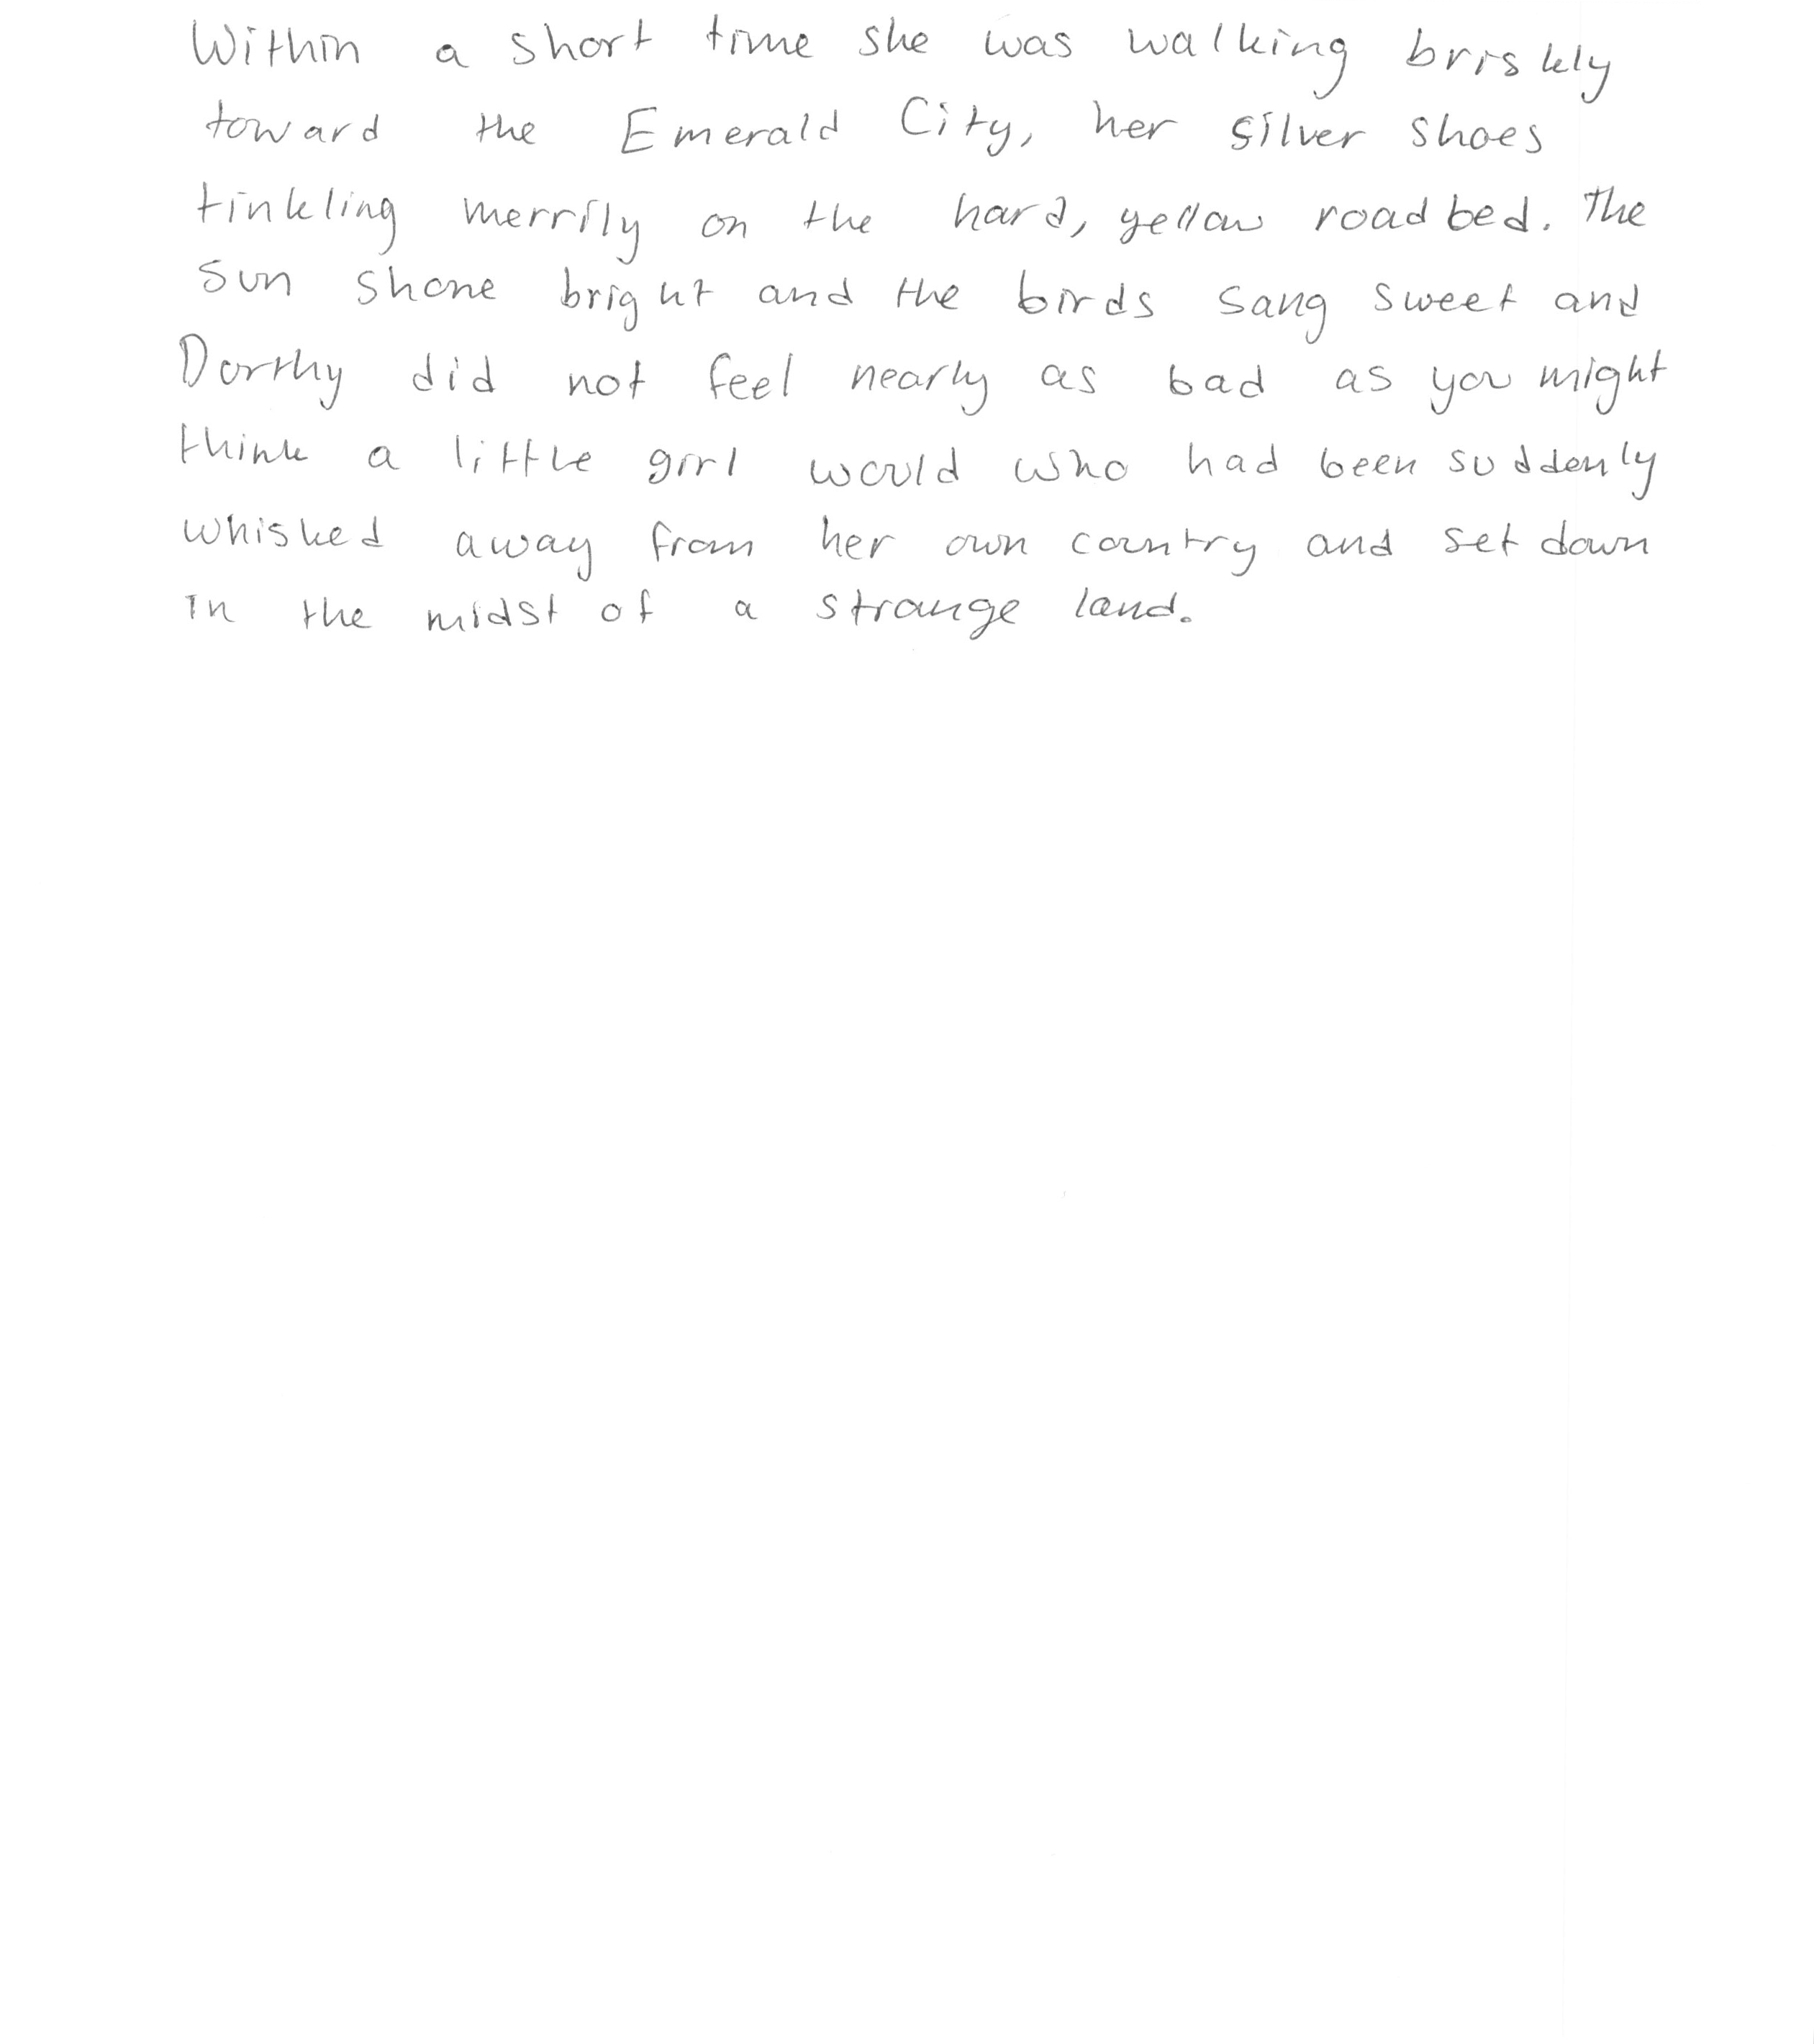 Within a short time she was walking briskly
toward the Emerald City, her silver shoes
tinkling merrily on the hard, yellow roadbed. The
sun shone bright and the birds sang sweet and
Dorthy did not feel nearly as bad as you might
think a little girl would who had been suddenly
whisked away from her own country and set down
in the midst of a strange land.